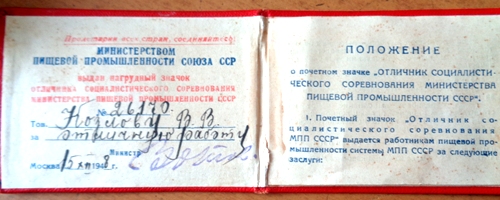 Пролетарии всех стран, соединяйтесь!
МИНИСТЕРСТВОМ
ПИЩЕВОЙ ПРОМЫШЛЕННОСТИ СОЮЗА ССР
выдан нагрудный значок
ОТЛИЧНИКА СОЦИАЛИСТИЧЕСКОГО СОРЕВНОВАНИЯ
МИНИСТЕРСТВА ПИЩЕВОЙ ПРОМЫШЛЕННОСТИ СССР
№
Тов. Козлову В. В.
за отличную работу
Министр
Москва 15 XII 1948
ПОЛОЖЕНИЕ
о почетном значке "ОТЛИЧНИК СОЦИАЛИСТИ-
ЧЕСКОГО СОРЕВНОВАНИЯ МИНИСТЕРСТВА
ПИЩЕВОЙ ПРОМЫШЛЕННОСТИ СССР".
1. Почетный значок "Отличник со-
циалистического соревнования
МПП СССР" выдается работникам пищевой про-
мышленности системы МПП СССР за следующие
заслуги: